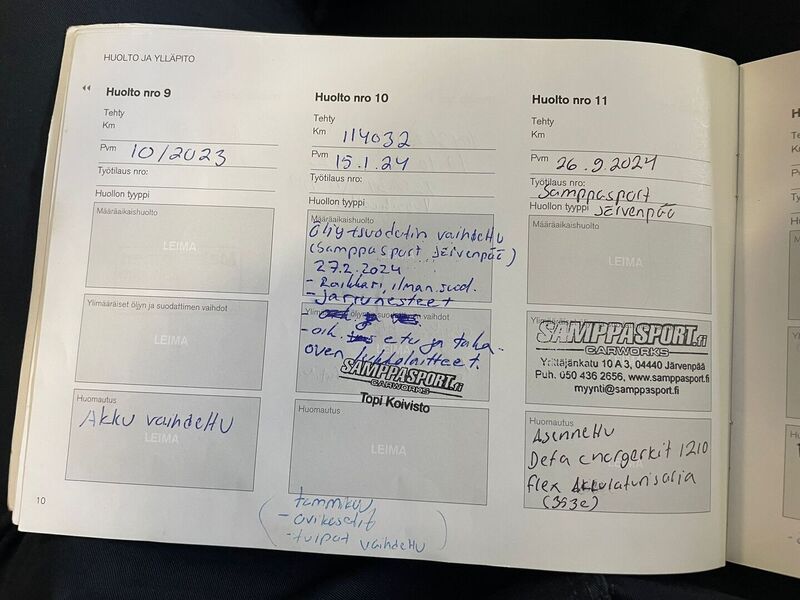 HUOLTO JA YLLÄPITO
Huolto nro 9
Tehty
Km
Pvm 10/2023
Työtilaus nro:
Huollon tyyppi
Määräaikaishuolto
LEIMA
Ylimääräiset öljyn ja suodattimen vaihdot
LEIMA
Huomautus
Akku vaihdettu
LEIMA
10
Huolto nro 10
Tehty
Km 114032
Pvm 15.1.24
Työtilaus nro:
Huollon tyyppi
Määräaikaishuolto
Öljy+suodatin vaihdettu
(Samppasport Järvenpää)
27.2.2024
- Raikkari, ilman.suod.
- jarrunesteet
öljyn ja suodattimen vaihdot
- oik. etu ja taka
oven lukkolaitteet.
SAMPPASPORT.fi
CARWORKS
Topi Koivisto
Huomautus
LEIMA
(tammikuu
- ovikasetit
- tulpat vaihdettu)
Huolto nro 11
Tehty
Km
Pvm 26.9.2024
Työtilaus nro:
Samppasport
Huollon tyyppi Järvenpää
Määräaikaishuolto
LEIMA
SAMPPASPORT.fi
CARWORKS
Yrittäjänkatu 10 A 3, 04440 Järvenpää
Puh. 050 436 2656, www.samppasport.fi
myynti@samppasport.fi
Huomautus
Asennettu
Defa energerkit 1210
flex laturisarja
(353e)
LEIMA